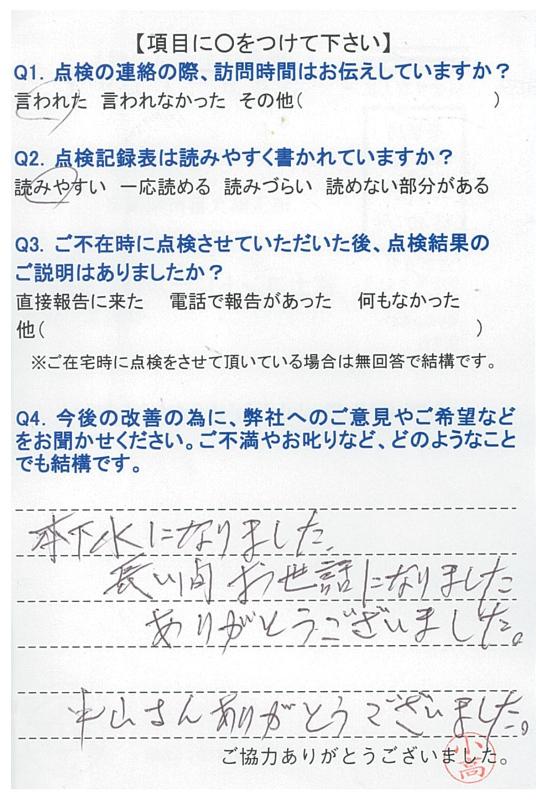 【項目に〇をつけて下さい】
Q1. 点検の連絡の際、訪問時間はお伝えしていますか？
言われた 言われなかった その他( )
Q2. 点検記録表は読みやすく書かれていますか？
読みやすい 一応読める 読みづらい 読めない部分がある
Q3. ご不在時に点検させていただいた後、点検結果の
ご説明はありましたか？
直接報告に来た 電話で報告があった 何もなかった
他( )
※ご在宅時に点検をさせて頂いている場合は無回答で結構です。
Q4. 今後の改善の為に、弊社へのご意見やご希望など
をお聞かせください。ご不満やお叱りなど、どのようなこと
でも結構です。
本下水になりました、
長い間お世話になりました
ありがとうございました。
中山さんありがとうございました。
ご協力ありがとうございました。
小高